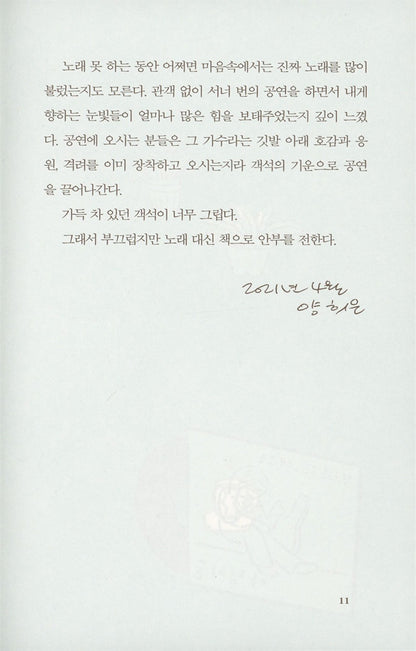 노래 못 하는 동안 어쩌면 마음속에서는 진짜 노래를 많이
불렀는지도 모른다. 관객 없이 서너 번의 공연을 하면서 내게
향하는 눈빛들이 얼마나 많은 힘을 보태주었는지 깊이 느꼈
다. 공연에 오시는 분들은 그 가수라는 깃발 아래 호감과 응
원, 격려를 이미 장착하고 오시는지라 객석의 기운으로 공연
을 끌어나간다.
가득 차 있던 객석이 너무 그립다.
그래서 부끄럽지만 노래 대신 책으로 안부를 전한다.
2021년 4월
양희은
11